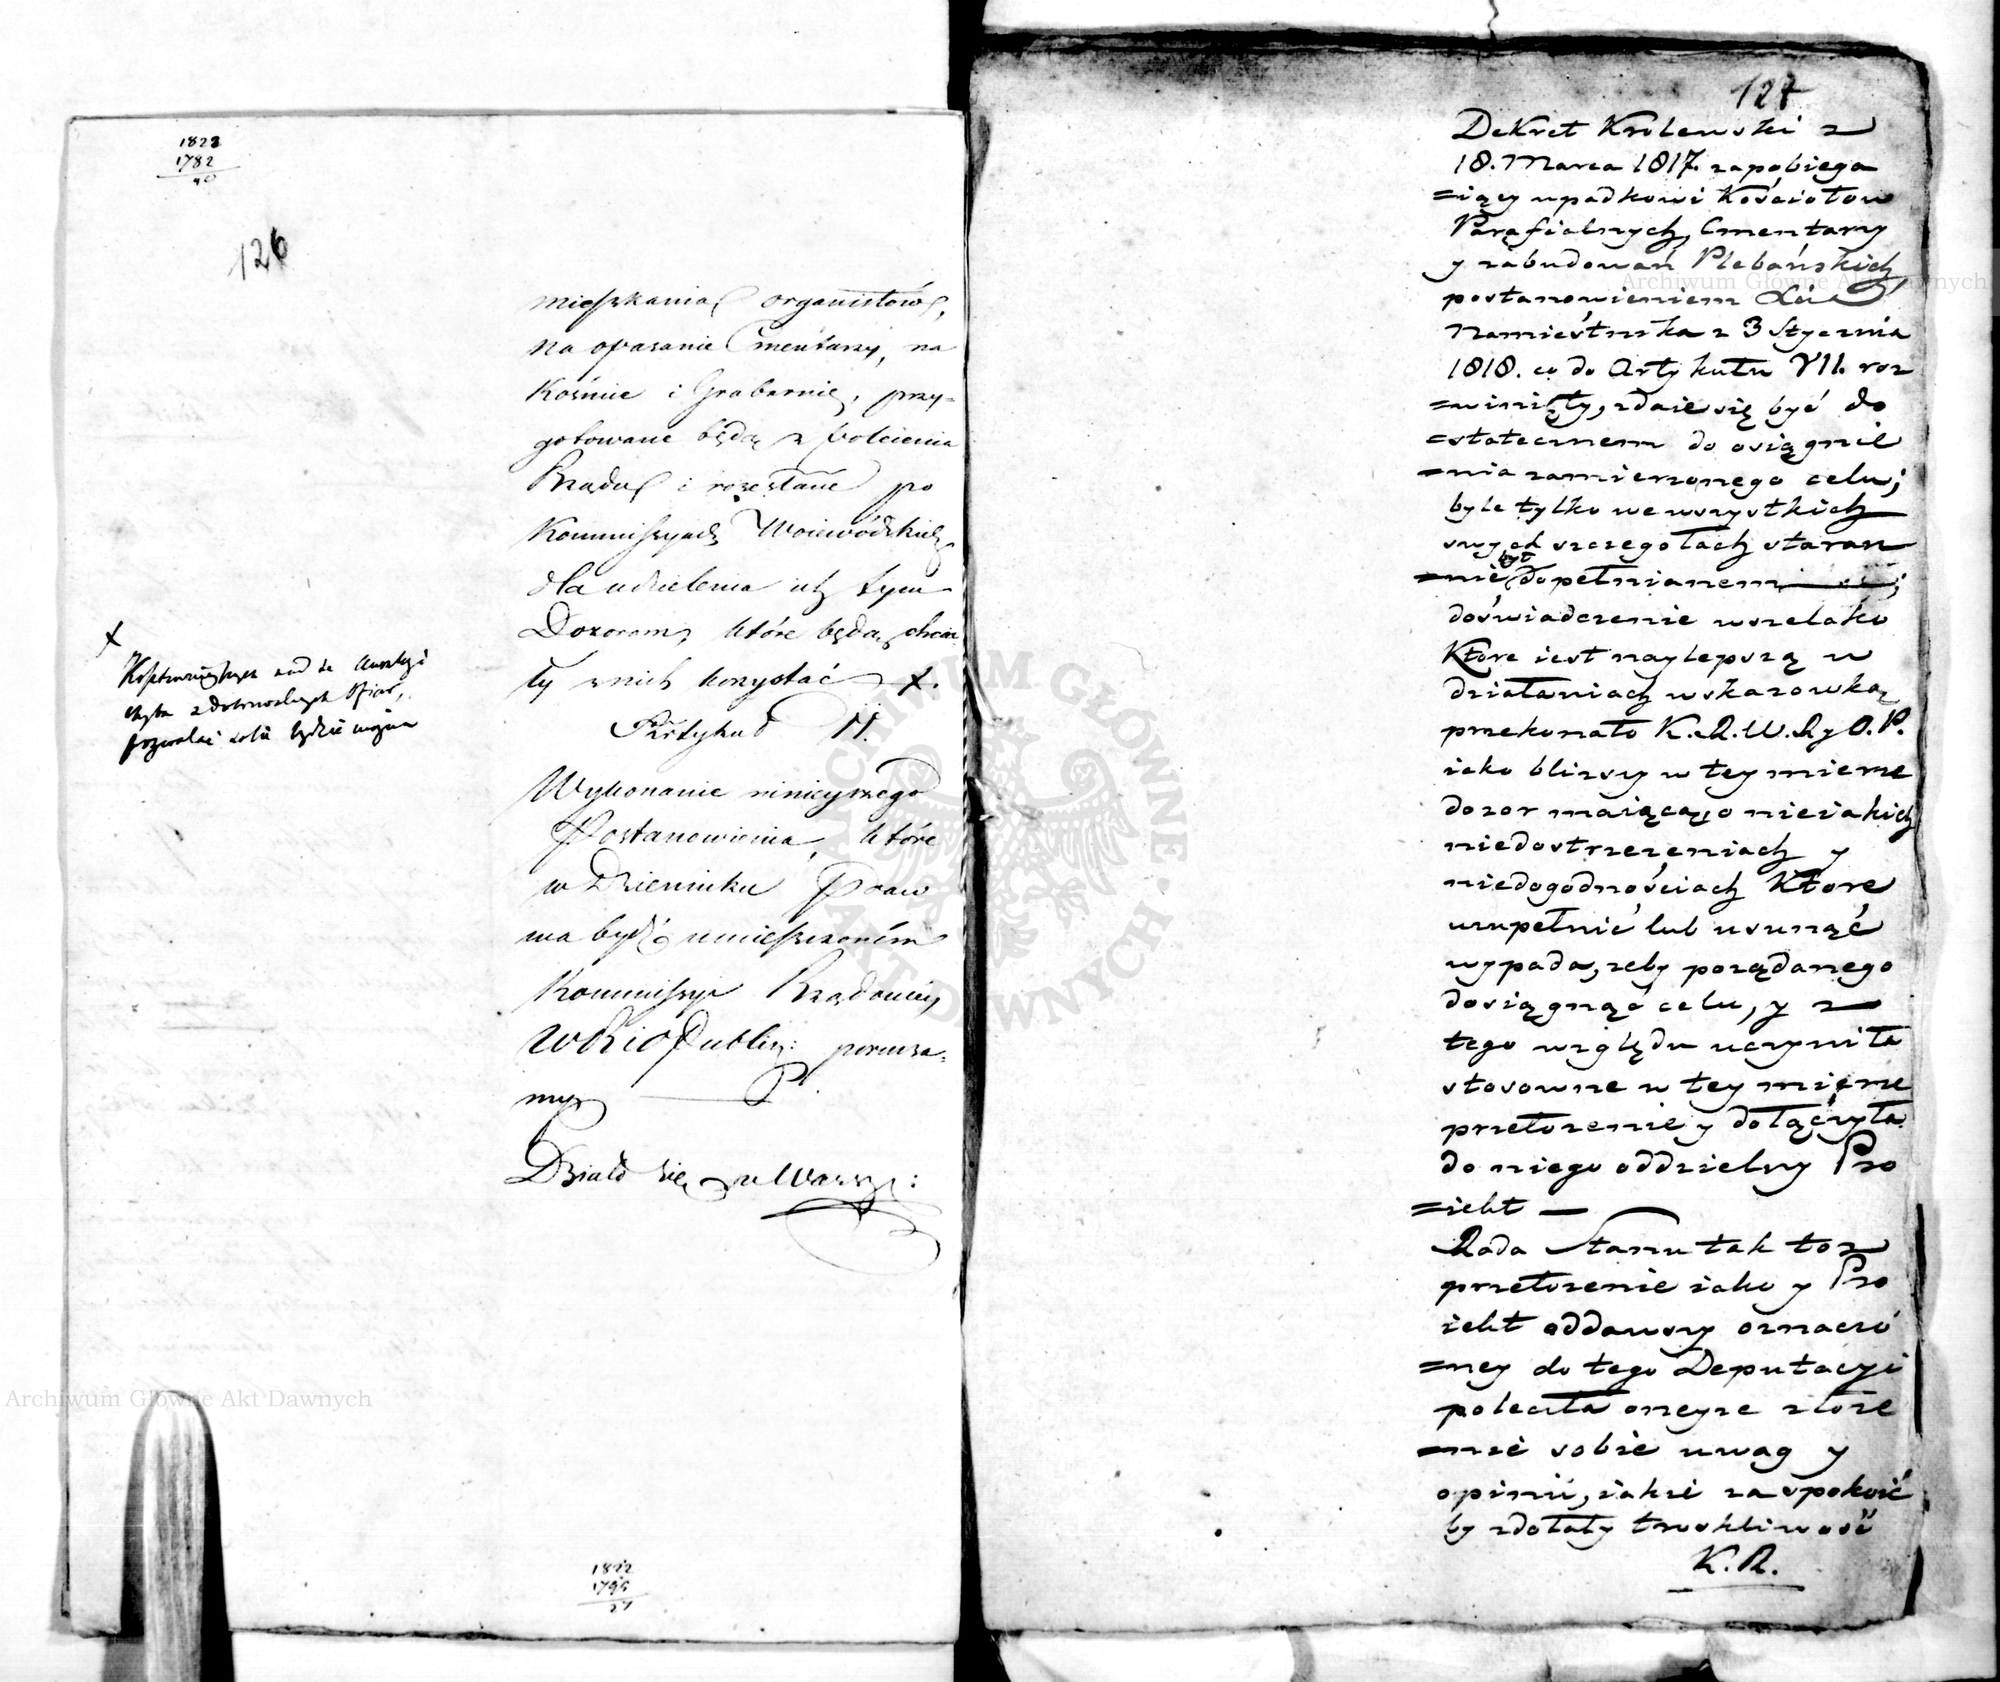 1822
1782
40
126
mieszkania organistów,
na opasanie Cmentarzy, na
Kośnice i Grabarnie, przy-
gotowane będą z polecenia
Rządu i rozesłane po
Kommissyach Woiewódzkich
dla udzielenia ich tym
Dozorom, które będą chcia
ły z nich korzystać x.
x
nad te
chyba z dobrowolnych Ofiar,
pozwalać sobie będzie można
Artykuł 11.
Wykonanie ninieyszego
Postanowienia, które
w Dzienniku Praw
ma bydź umieszczoném
Kommissyi Rządowéy
W R i O Publicz: porucza-
my
Działo się w Warsz:
1822
1795
27
127
Dekret Krolewski z
18. Marca 1817. zapobiega
=iący upadkowi Kościołow
Parafialnych, Cmentarzy
y zabudowań Plebańskich
postanowieniem
Namiestnika z 3 Stycznia
1818. co do Artykułu VII. roz
=winięty, zdaie się być do
=statecznem do osiągnie
=nia zamierzonego celu;
byle tylko we wszystkich
swych szczegołach staran
=nie był dopełnianem;
doświadczenie wszelako
Ktore iest naylepszą w
działaniach wskazowką
przekonało K. R. W. R y O. P.
iako bliższy w tey mierze
dozor maiącą, o nieiakich
niedostrzeżeniach y
niedogodnościach Ktore
uzupełnić lub usunąć
wypada, żeby pożądanego
dosiągnąć celu, y z
tego względu uczyniła
stosowne w tey mierze
przełożenie y dołączyła
do niego oddzielny Pro
=iekt —
Rada Stanu tak toż
przełożenie iako y Pro
iekt oddawszy oznaczo
=ney do tego Deputacyi
poleciła oneyże złoże
=nie sobie uwag y
opinii, iakie zaspokoić
by zdołały troskliwość
K. R.
Archiwum Główne Akt Dawnych
Archiwum Główne Akt Dawnych
ARCHIWUM GŁÓWNE AKT DAWNYCH